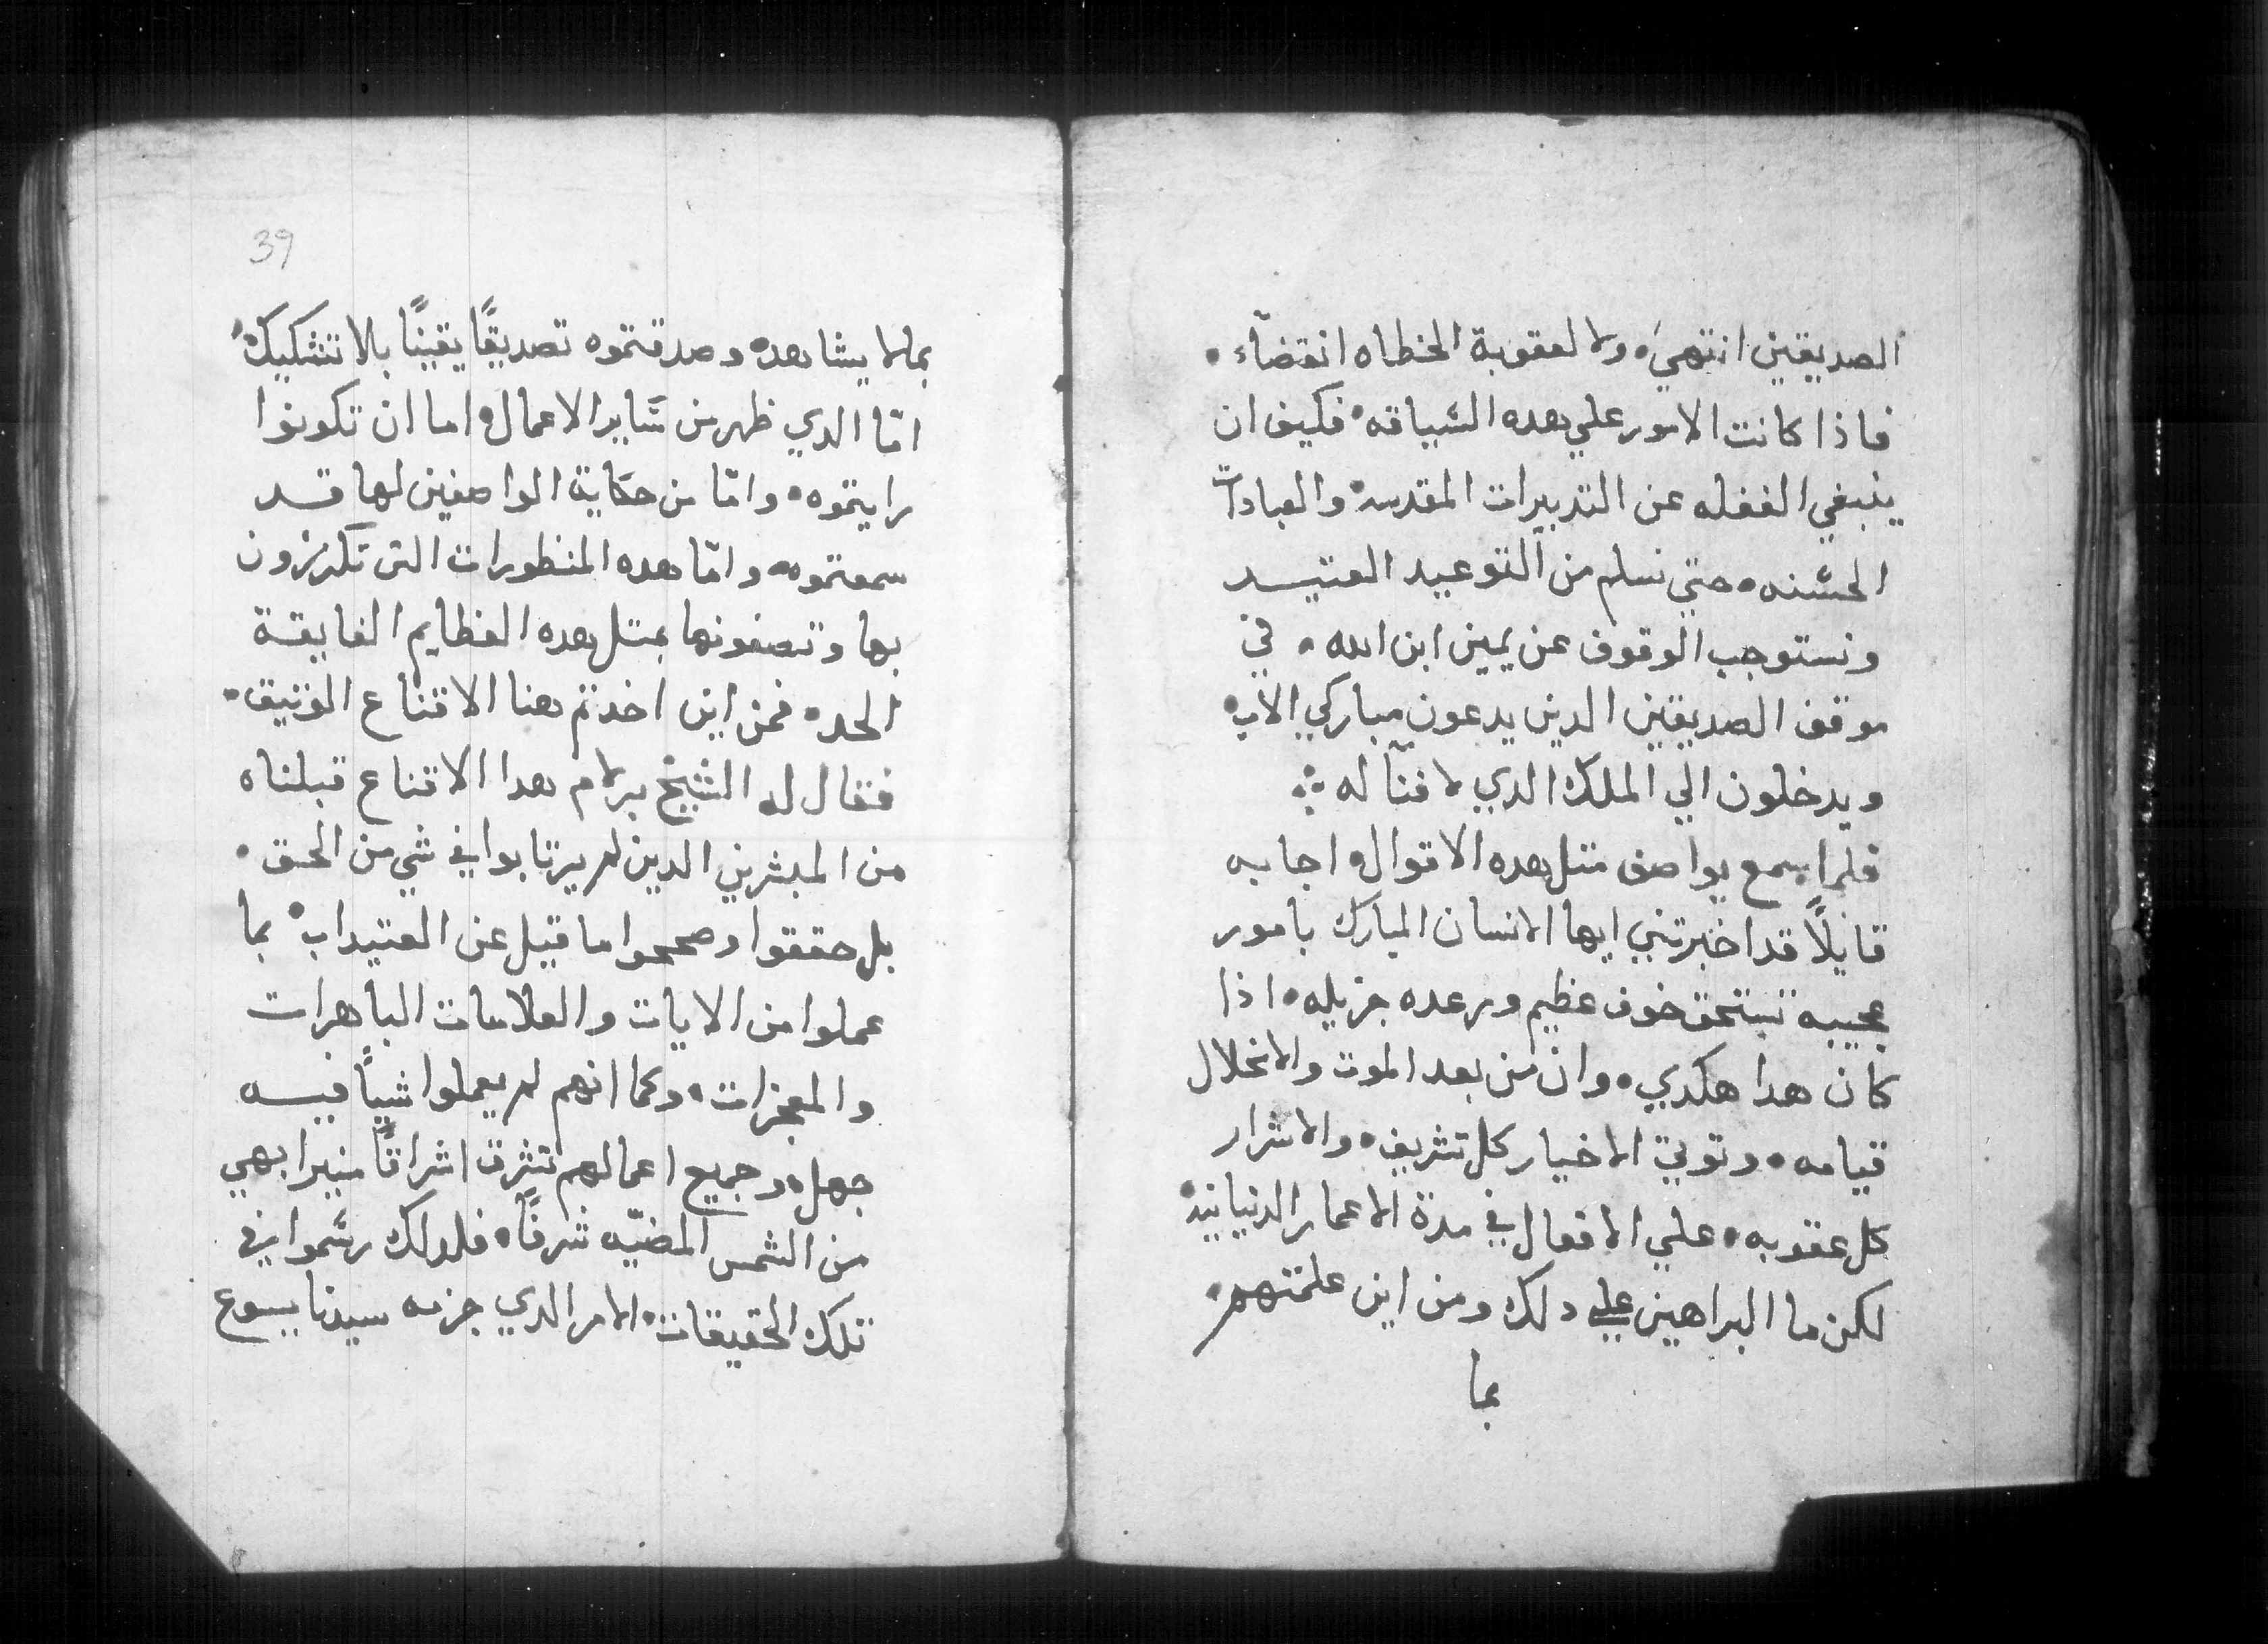 الصديقين انتهي، ولا لعقوبة الخطاه انقضآء.
فاذا كانت الامور علي هده السياقه، فكيف ان
ينبغي الغفله عن التدبيرات المقدسه، والعبادات
الحسنه، حتي نسلم من التوعيد العتيد
ونستوجب الوقوف عن يمين ابن الله، في
موقف الصديقين الدين يدعون مباركي الاب،
ويدخلون الي الملك الدي لا فنآ له ܀
فلما سمع يواصف متل هده الاقوال، اجابه
قايلًا قد اخبرتني ايها الانسان المبارك بامور
عجيبه تستحق خوف عظيم ورعده جزيله، اذا
كان هدا هكدي، وان من بعد الموت والانحلال
قيامه، وتوتي الاخيار كل تشريف، والاشرار
كل عقوبه، علي الافعال في مدة الاعمار الدنيانيه،
لكن ما البراهين علي دلك ومن اين علمتهم،
بما
39
بمالا يشاهده وصدقتموه تصديقًا يقينًا بلا تشكيك،
امّا الدي ظهر من ساير الاعمال، اما ان تكونوا
رايتموه، وامّا من حكاية الواصفين لها قد
سمعتموه، وامّا هده المنظورات التي تكرزون
بها وتصفونها بمتل هده العظايم الفايقة
الحد، فمن اين اخدتم هنا الاقتناع الوتيق.
فقال له الشيخ برلام هدا الاقتناع قبلناه
من المبشرين الدين لم يرتابوا في شي من الحق.
بل حققوا وصححوا ما قيل عن العتيدات، بما
عملوا من الايات والعلامات الباهرات
والمعجزات، وكما انهم لم يعملوا شيًا فيه
جهل، وجميع اعمالهم تشرق اشراقًا منيرا بهي
من الشمس المضيّه شرفًا، فلدلك رسموا في
تلك الحقيقات، الامر الدي جزمه سيدنا يسوع